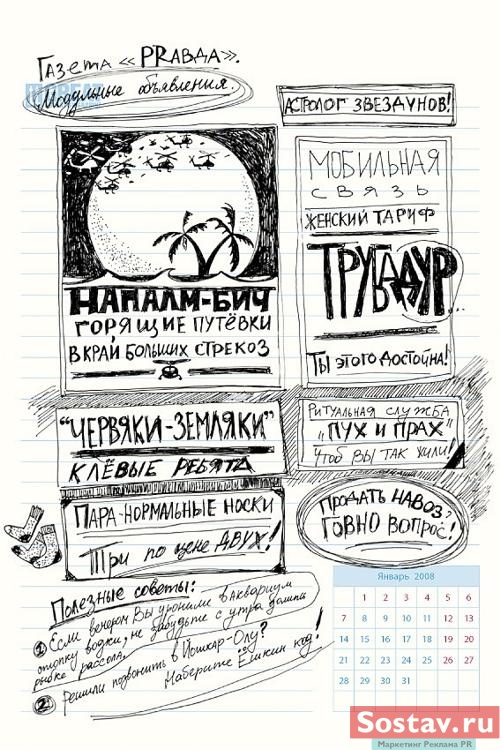 Газета «PRавда».
Модульные объявления.
Астролог Звездунов!
Мобильная
связь
Женский тариф
Трубадур...
Ты этого достойна!
Напалм-бич
горящие путёвки
в край больших стрекоз
"Червяки-земляки"
клёвые ребята
Ритуальная служба
"Пух и прах"
Чтоб вы так жили!
Пара-нормальные носки
Три по цене двух!
Продать навоз?
Говно вопрос!
Полезные советы:
1 Если вечером Вы уронили в аквариум
стопку водки, не забудьте с утра дать
рыбке рассола.
2 Решили позвонить в Йошкар-Олу?
Наберите Ёшкин код!
Январь 2008
1 2 3 4 5 6
7 8 9 10 11 12 13
14 15 16 17 18 19 20
21 22 23 24 25 26 27
28 29 30 31
Sostav.ru
Маркетинг Реклама PR